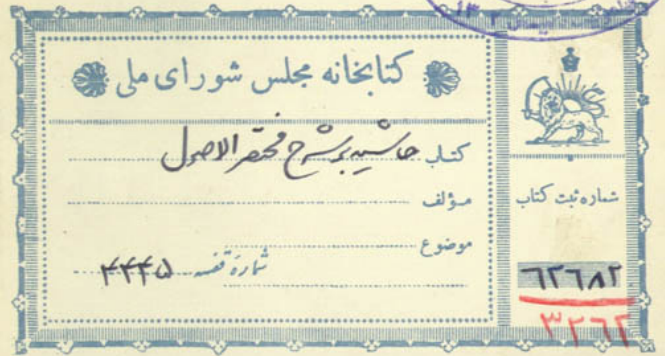 کتابخانه مجلس شورای ملی
کتاب حاشیه بر شرح مختصر الاصول
مؤلف
موضوع
شماره قفسه ۴۴۴۵
شماره ثبت کتاب
۶۲۶۸۲
۳۲۶۲